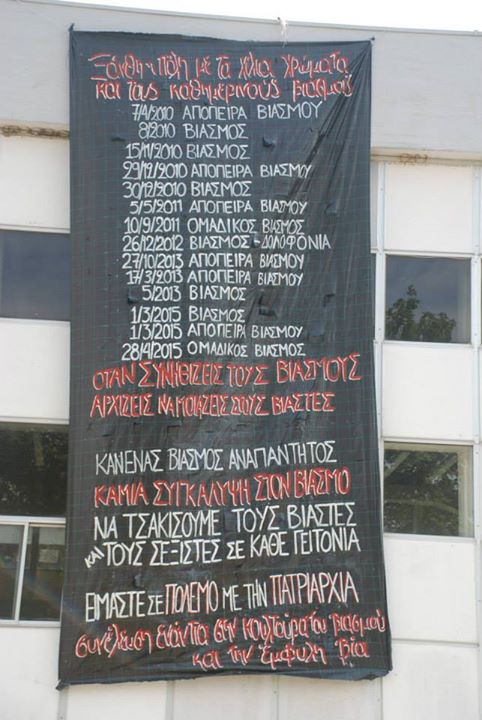 Ξάνθη η πόλη με τα χίλια χρώματα
και τους καθημερινούς βιασμούς
7/4/2010 ΑΠΟΠΕΙΡΑ ΒΙΑΣΜΟΥ
8/2010 ΒΙΑΣΜΟΣ
15/11/2010 ΒΙΑΣΜΟΣ
29/12/2010 ΑΠΟΠΕΙΡΑ ΒΙΑΣΜΟΥ
30/12/2010 ΒΙΑΣΜΟΣ
5/5/2011 ΑΠΟΠΕΙΡΑ ΒΙΑΣΜΟΥ
10/9/2011 ΟΜΑΔΙΚΟΣ ΒΙΑΣΜΟΣ
26/12/2012 ΒΙΑΣΜΟΣ-ΔΟΛΟΦΟΝΙΑ
27/10/2013 ΑΠΟΠΕΙΡΑ ΒΙΑΣΜΟΥ
17/3/2013 ΑΠΟΠΕΙΡΑ ΒΙΑΣΜΟΥ
5/2013 ΒΙΑΣΜΟΣ
1/3/2015 ΒΙΑΣΜΟΣ
1/3/2015 ΑΠΟΠΕΙΡΑ ΒΙΑΣΜΟΥ
28/4/2015 ΟΜΑΔΙΚΟΣ ΒΙΑΣΜΟΣ
ΟΤΑΝ ΣΥΝΗΘΙΖΕΙΣ ΤΟΥΣ ΒΙΑΣΜΟΥΣ
ΑΡΧΙΖΕΙΣ ΝΑ ΜΟΙΑΖΕΙΣ ΣΤΟΥΣ ΒΙΑΣΤΕΣ
ΚΑΝΕΝΑΣ ΒΙΑΣΜΟΣ ΑΝΑΠΑΝΤΗΤΟΣ
ΚΑΜΙΑ ΣΥΓΚΑΛΥΨΗ ΣΤΟΝ ΒΙΑΣΜΟ
ΝΑ ΤΣΑΚΙΣΟΥΜΕ ΤΟΥΣ ΒΙΑΣΤΕΣ
και ΤΟΥΣ ΣΕΞΙΣΤΕΣ ΣΕ ΚΑΘΕ ΓΕΙΤΟΝΙΑ
ΕΙΜΑΣΤΕ ΣΕ ΠΟΛΕΜΟ ΜΕ ΤΗΝ ΠΑΤΡΙΑΡΧΙΑ
συνέλευση ενάντια στην κουλτούρα του βιασμού
και την έμφυλη βία